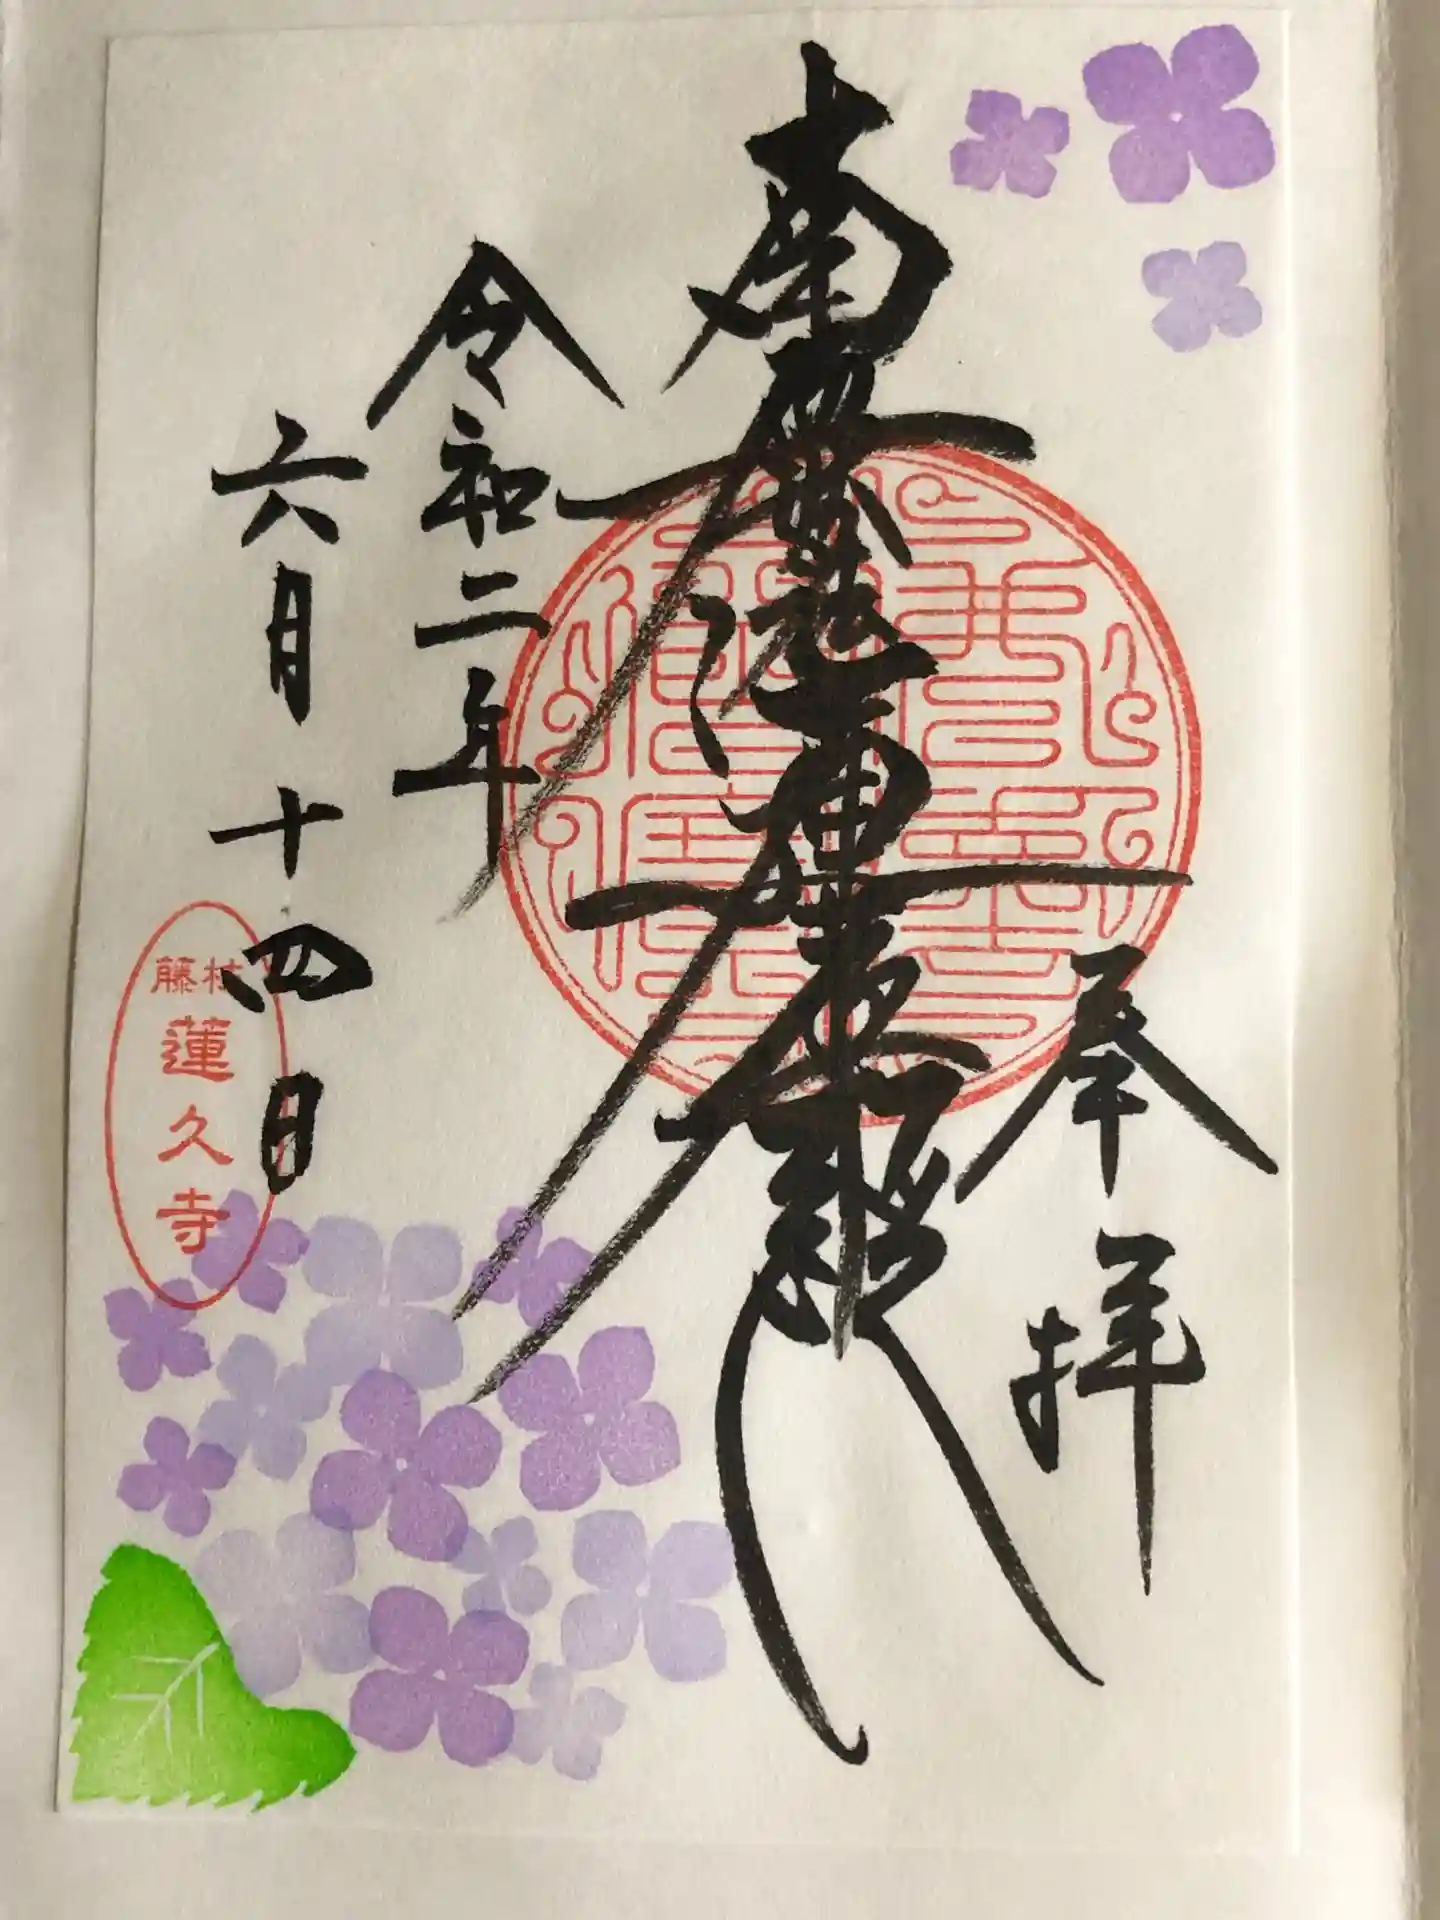 奉拝
南無妙法蓮華経
令和二年
六月十四日
藤枝
蓮久寺